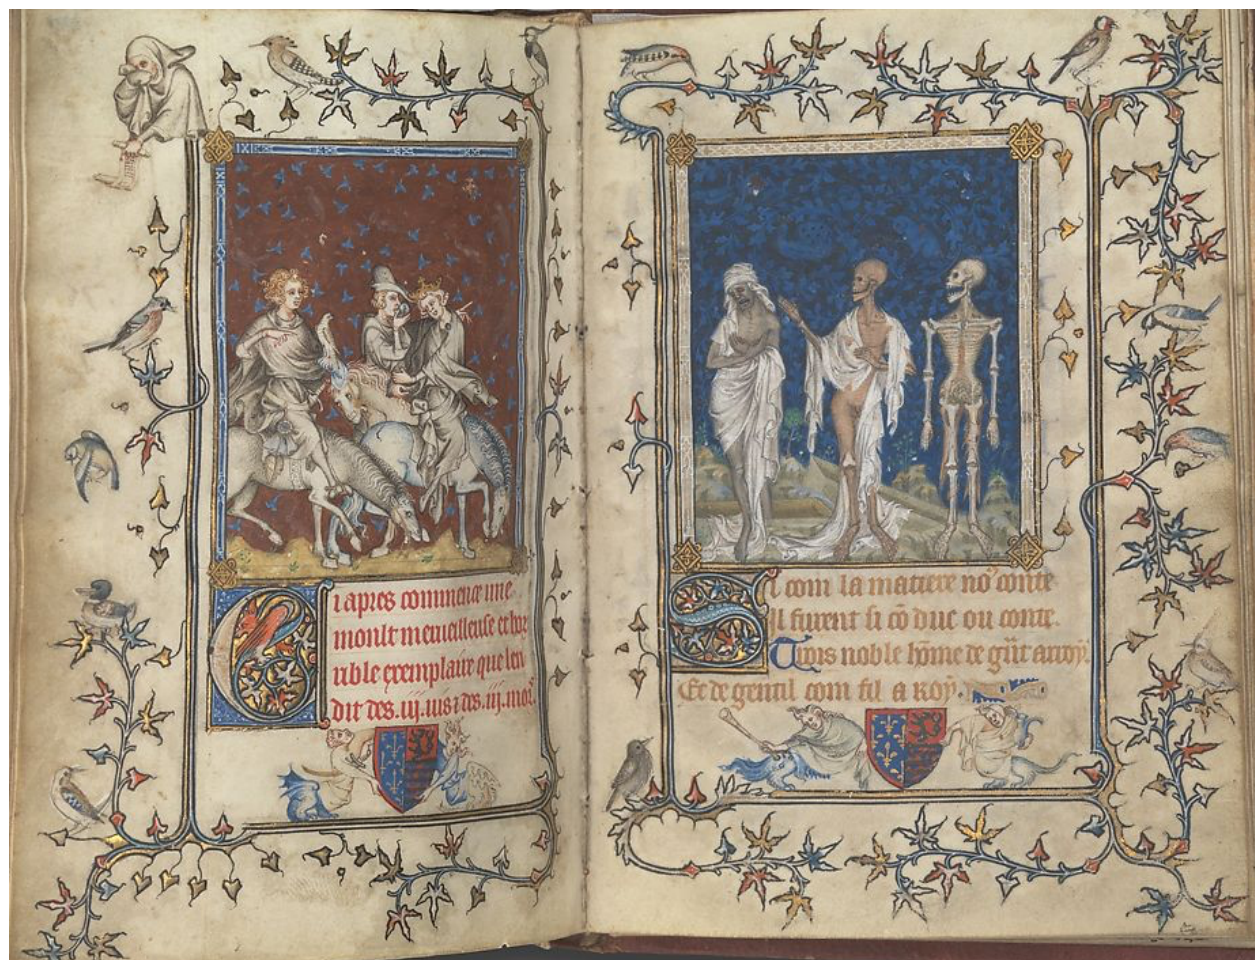 Ci apres commence une
moult merueilleuse et hor
rible exemplaire que len
dit des .iij. uis z des .iij. mors.
Si com la matiere no9 conte
Il furent si cō duc ou conte.
Trois noble hōme de gñt arroy.
Et de gentil com fil a roy.